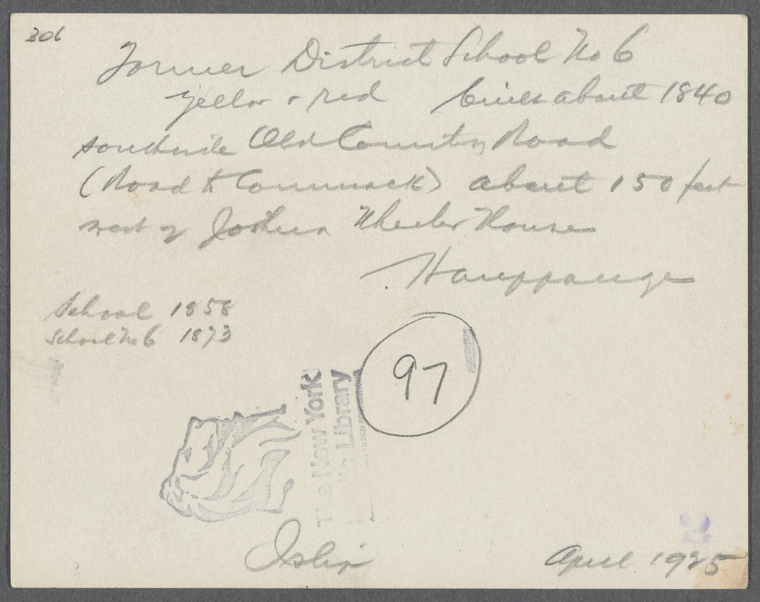 306
Former District School No 6
yellow & red Built about 1840
southside Old Country Road
(Road to Commack) about 150 feet
west of Joshua Wheeler House
Hauppauge
School 1858
School No 6 1873
97
The New York
Library
Islip
April 1925